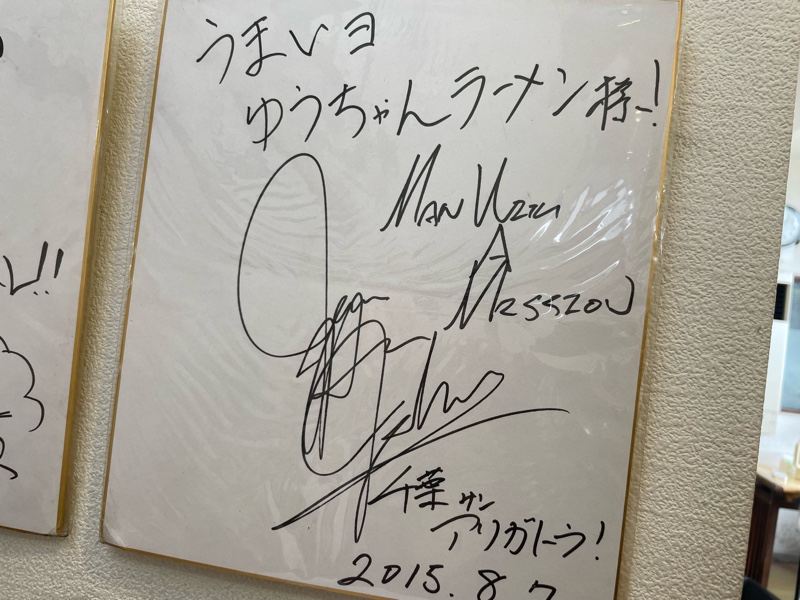 うまいヨ
ゆうちゃんラーメン様ー!
MAN WITH
A
MISSION
千葉サン
アリガトウ!
2015.8.7